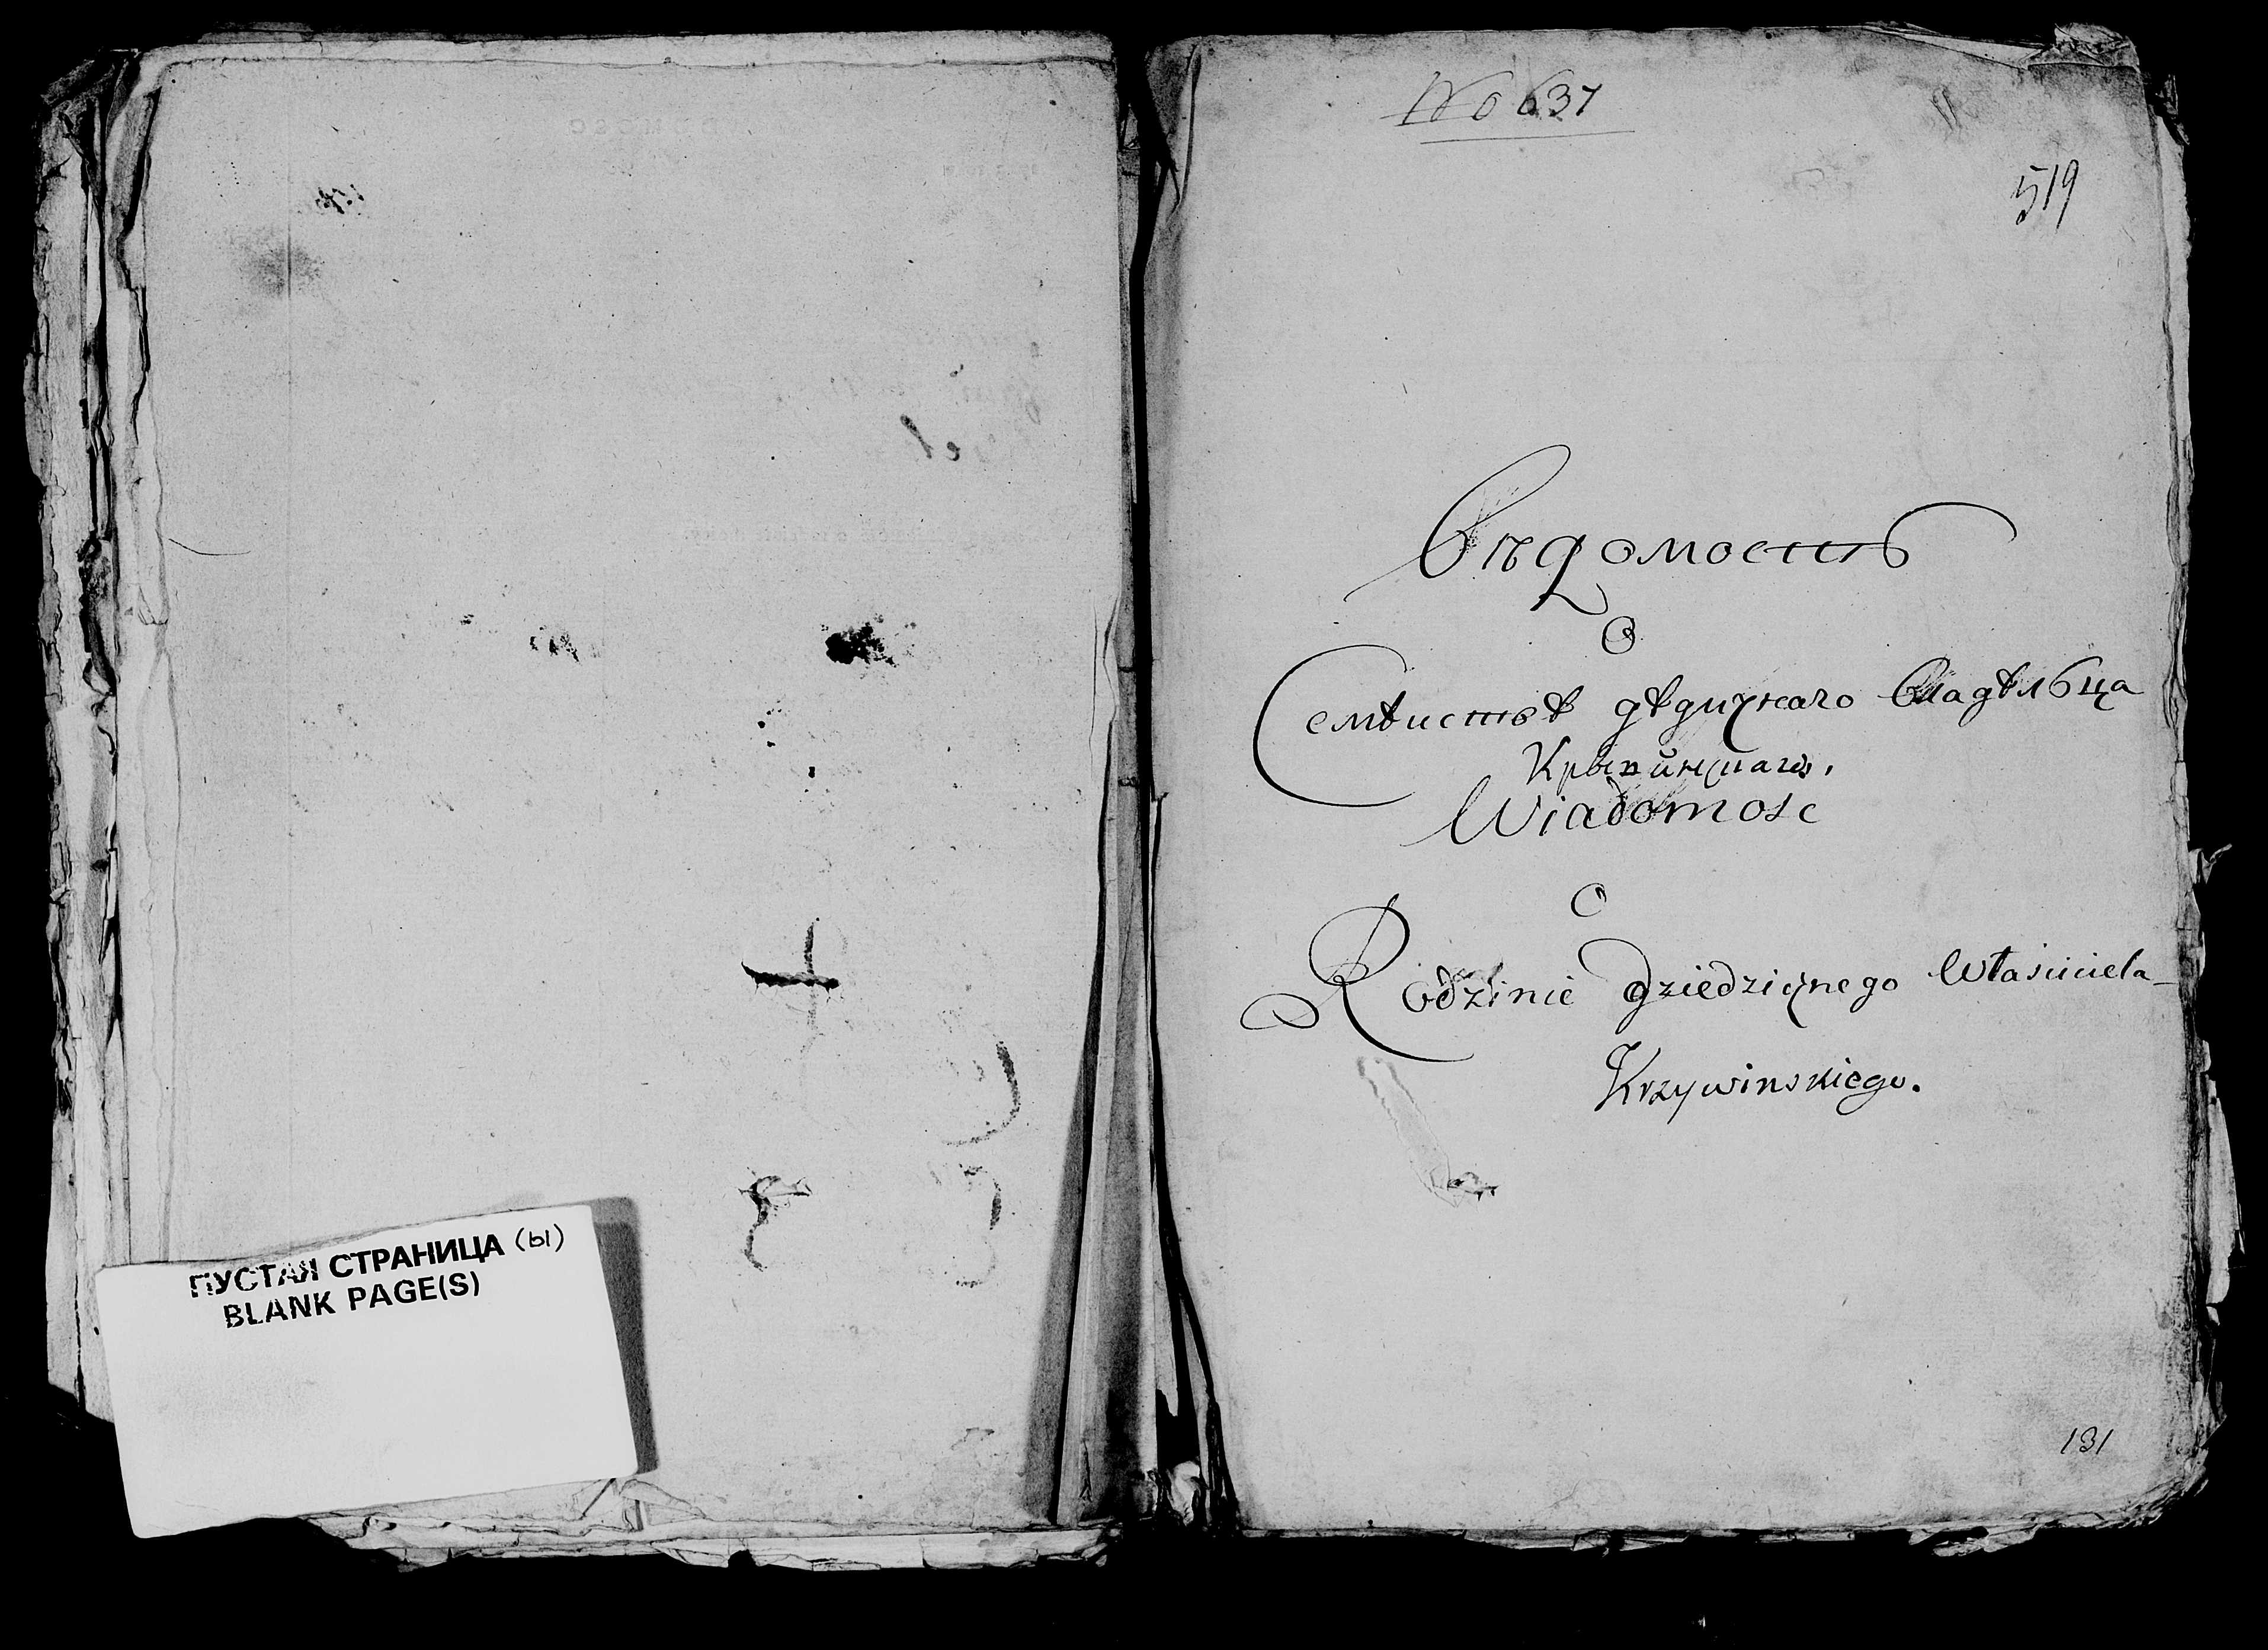 ПУСТАЯ СТРАНИЦА (ы)
BLANK PAGE(S)
No 637
519
Вѣдомость
О
Семѣиствѣ дѣдичнаго Владѣльца
Wiadomosc
O
Rodzinie dziedzicznego Własciciela
Krzywinskiego.
131